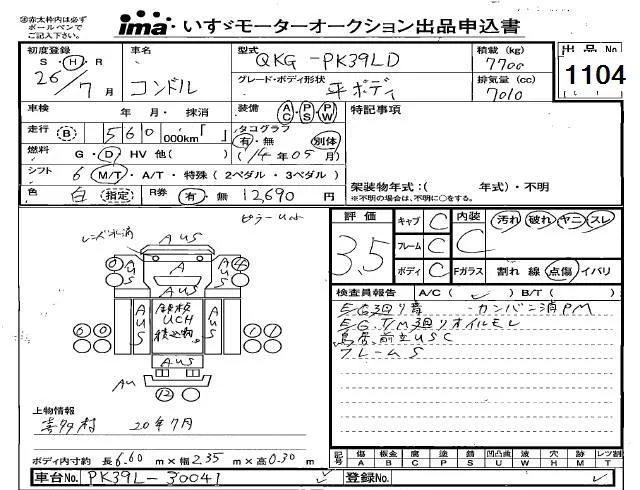 ※赤太枠内は必ず
ボールペンで
ご記入下さい。
ima いすゞモーターオークション出品申込書
初度登録 車名 型式 QKG-PK39LD 積載 (kg) 7700 出品No
S・H・R 26/7月 コンドル グレード・ボディ形状 平ボディ 排気量 (cc) 7010 1104
車検 年 月・抹消 装備 AC PS PW 特記事項
走行 B 560 000km「 」 タコグラフ 有・無 別体
燃料 G・D HV 他( ) (14年05月)
シフト 6 M/T・A/T・特殊(2ペダル・3ペダル)
架装物年式:( 年式)・不明
色 白 指定 R券 有・無 12,690円
※不明の場合は、不明に○をする。
評価 3.5 キャブ C 内装 C 汚れ 破れ ヤニ スレ
フレーム C
ボディ C Fガラス 割れ 線 点傷 イバリ
検査員報告 A/C( ✓ ) B/T( )
E/G廻り音 カンバン消PM
E/G.T/M廻りオイルモレ
鳥居、前立USC
フレームS
AUS
A
AUS AUS
0 4
AUS AUS
鉄板
UCH
0 0 1 1
AUS
AU
12
上物情報
20年7月
ボディ内寸約 長6.60m×幅2.35m×高0.30m
記号 傷 板金 腐 塗 錆 凹凸曲 波 穴 跡 レンズ割
A B C P S U W H M T
車台No. PK39L-30041 ✓ 登録No. ✓